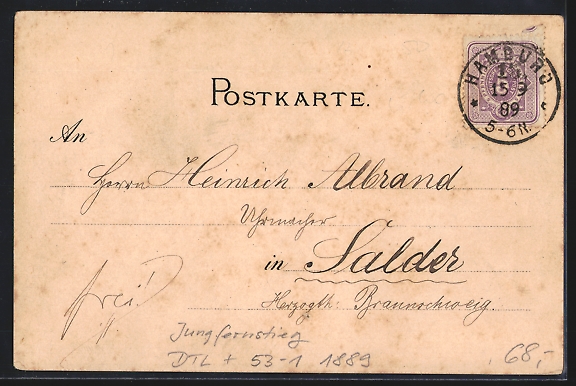 HAMBURG
1
15 9
89
5-6N.
POSTKARTE.
An
Herrn Heinrich Albrand
Uhrmacher
in Salder
Herzogth: Braunschweig.
frei!
Jungfernstieg
DTL + 53-1 1889
68,-